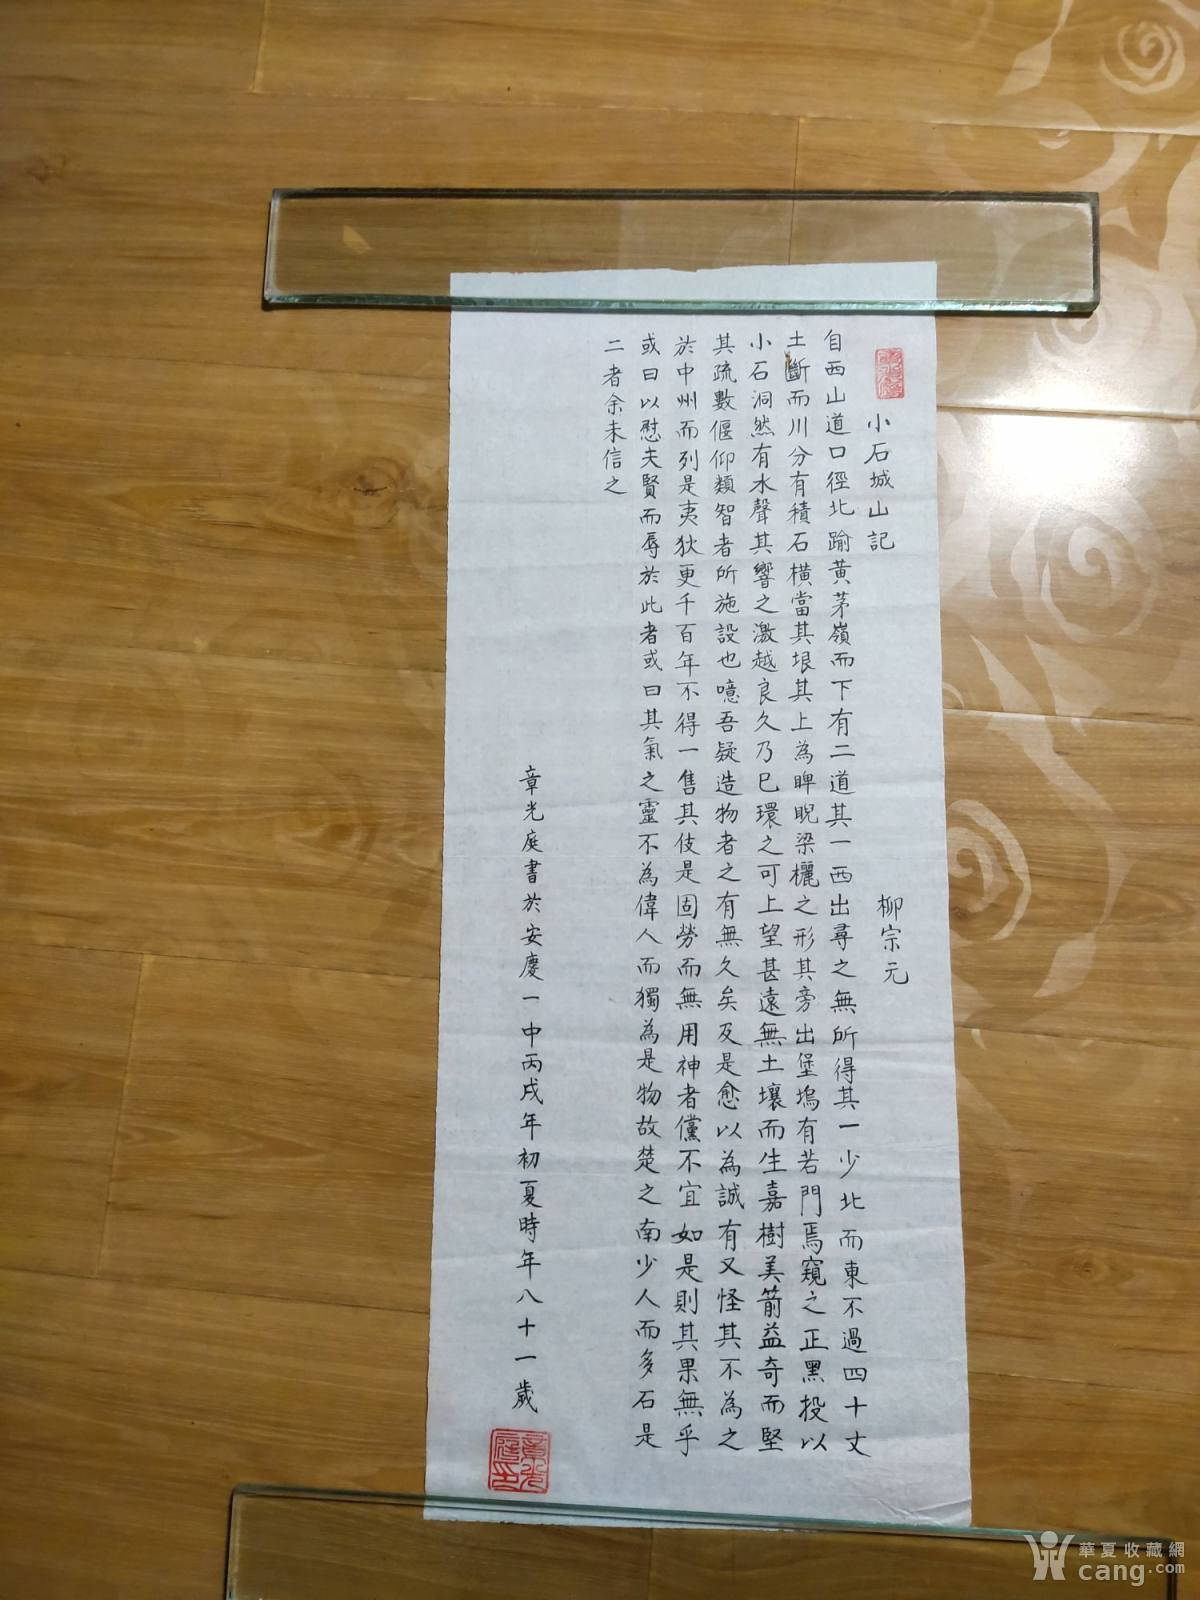 小石城山記 柳宗元
自西山道口徑北踰黃茅嶺而下有二道其一西出尋之無所得其一少北而東不過四十丈
土斷而川分有積石橫當其垠其上為睥睨梁欐之形其旁出堡塢有若門焉窺之正黑投以
小石洞然有水聲其響之激越良久乃已環之可上望甚遠無土壤而生嘉樹美箭益奇而堅
其疏數偃仰類智者所施設也噫吾疑造物者之有無久矣及是愈以為誠有又怪其不為之
於中州而列是夷狄更千百年不得一售其伎是固勞而無用神者儻不宜如是則其果無乎
或曰以慰夫賢而辱於此者或曰其氣之靈不為偉人而獨為是物故楚之南少人而多石是
二者余未信之
章光庭書於安慶一中丙戌年初夏時年八十一歲
章光庭印
華夏收藏網
cang.com